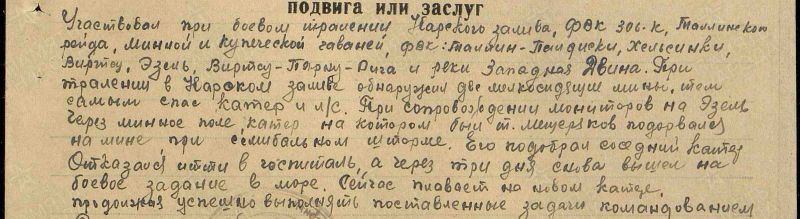 подвига или заслуг
Участвовал при боевом тралении Нарского залива, ФВК 306-к, Таллинского
рейда, минной и купеческой гаваней, фвк: Таллин-Палдиски, Хельсинки,
Виртсу, Эзель, Виртсу-Пярну-Рига и реки Западная Двина. При
тралении в Нарском заливе обнаружил две мелкосидящие мины, тем
самым спас катер и л/с. При сопровождении мониторов на Эзель
через минное поле, катер на котором был т. Мещеряков подорвался
на мине, при семибальном шторме. Его подобрал соседний катер
Отказался итти в госпиталь, а через три дня снова вышел на
боевое задание в море. Сейчас плавает на новом катере,
продолжая успешно выполнять поставленные задачи командованием